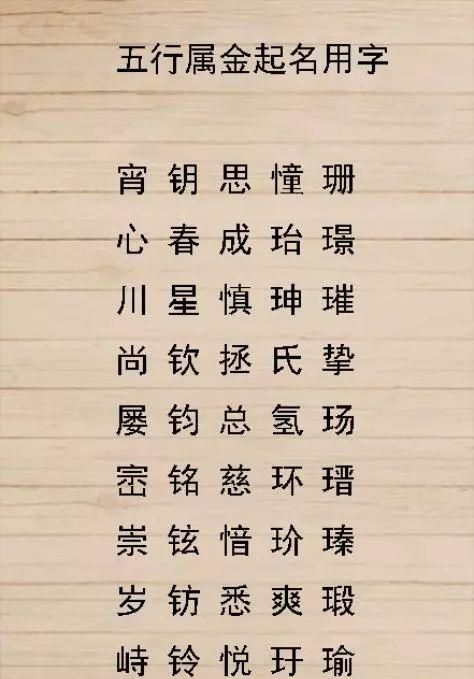 五行属金起名用字
宵 钥 思 憧 珊
心 春 成 珆 璟
川 星 慎 珅 璀
尚 钦 拯 氏 挚
屡 钧 总 氢 玚
崈 铭 慈 环 瑨
崇 铉 愔 玠 瑧
岁 钫 悉 爽 瑖
峙 铃 悦 玗 瑜